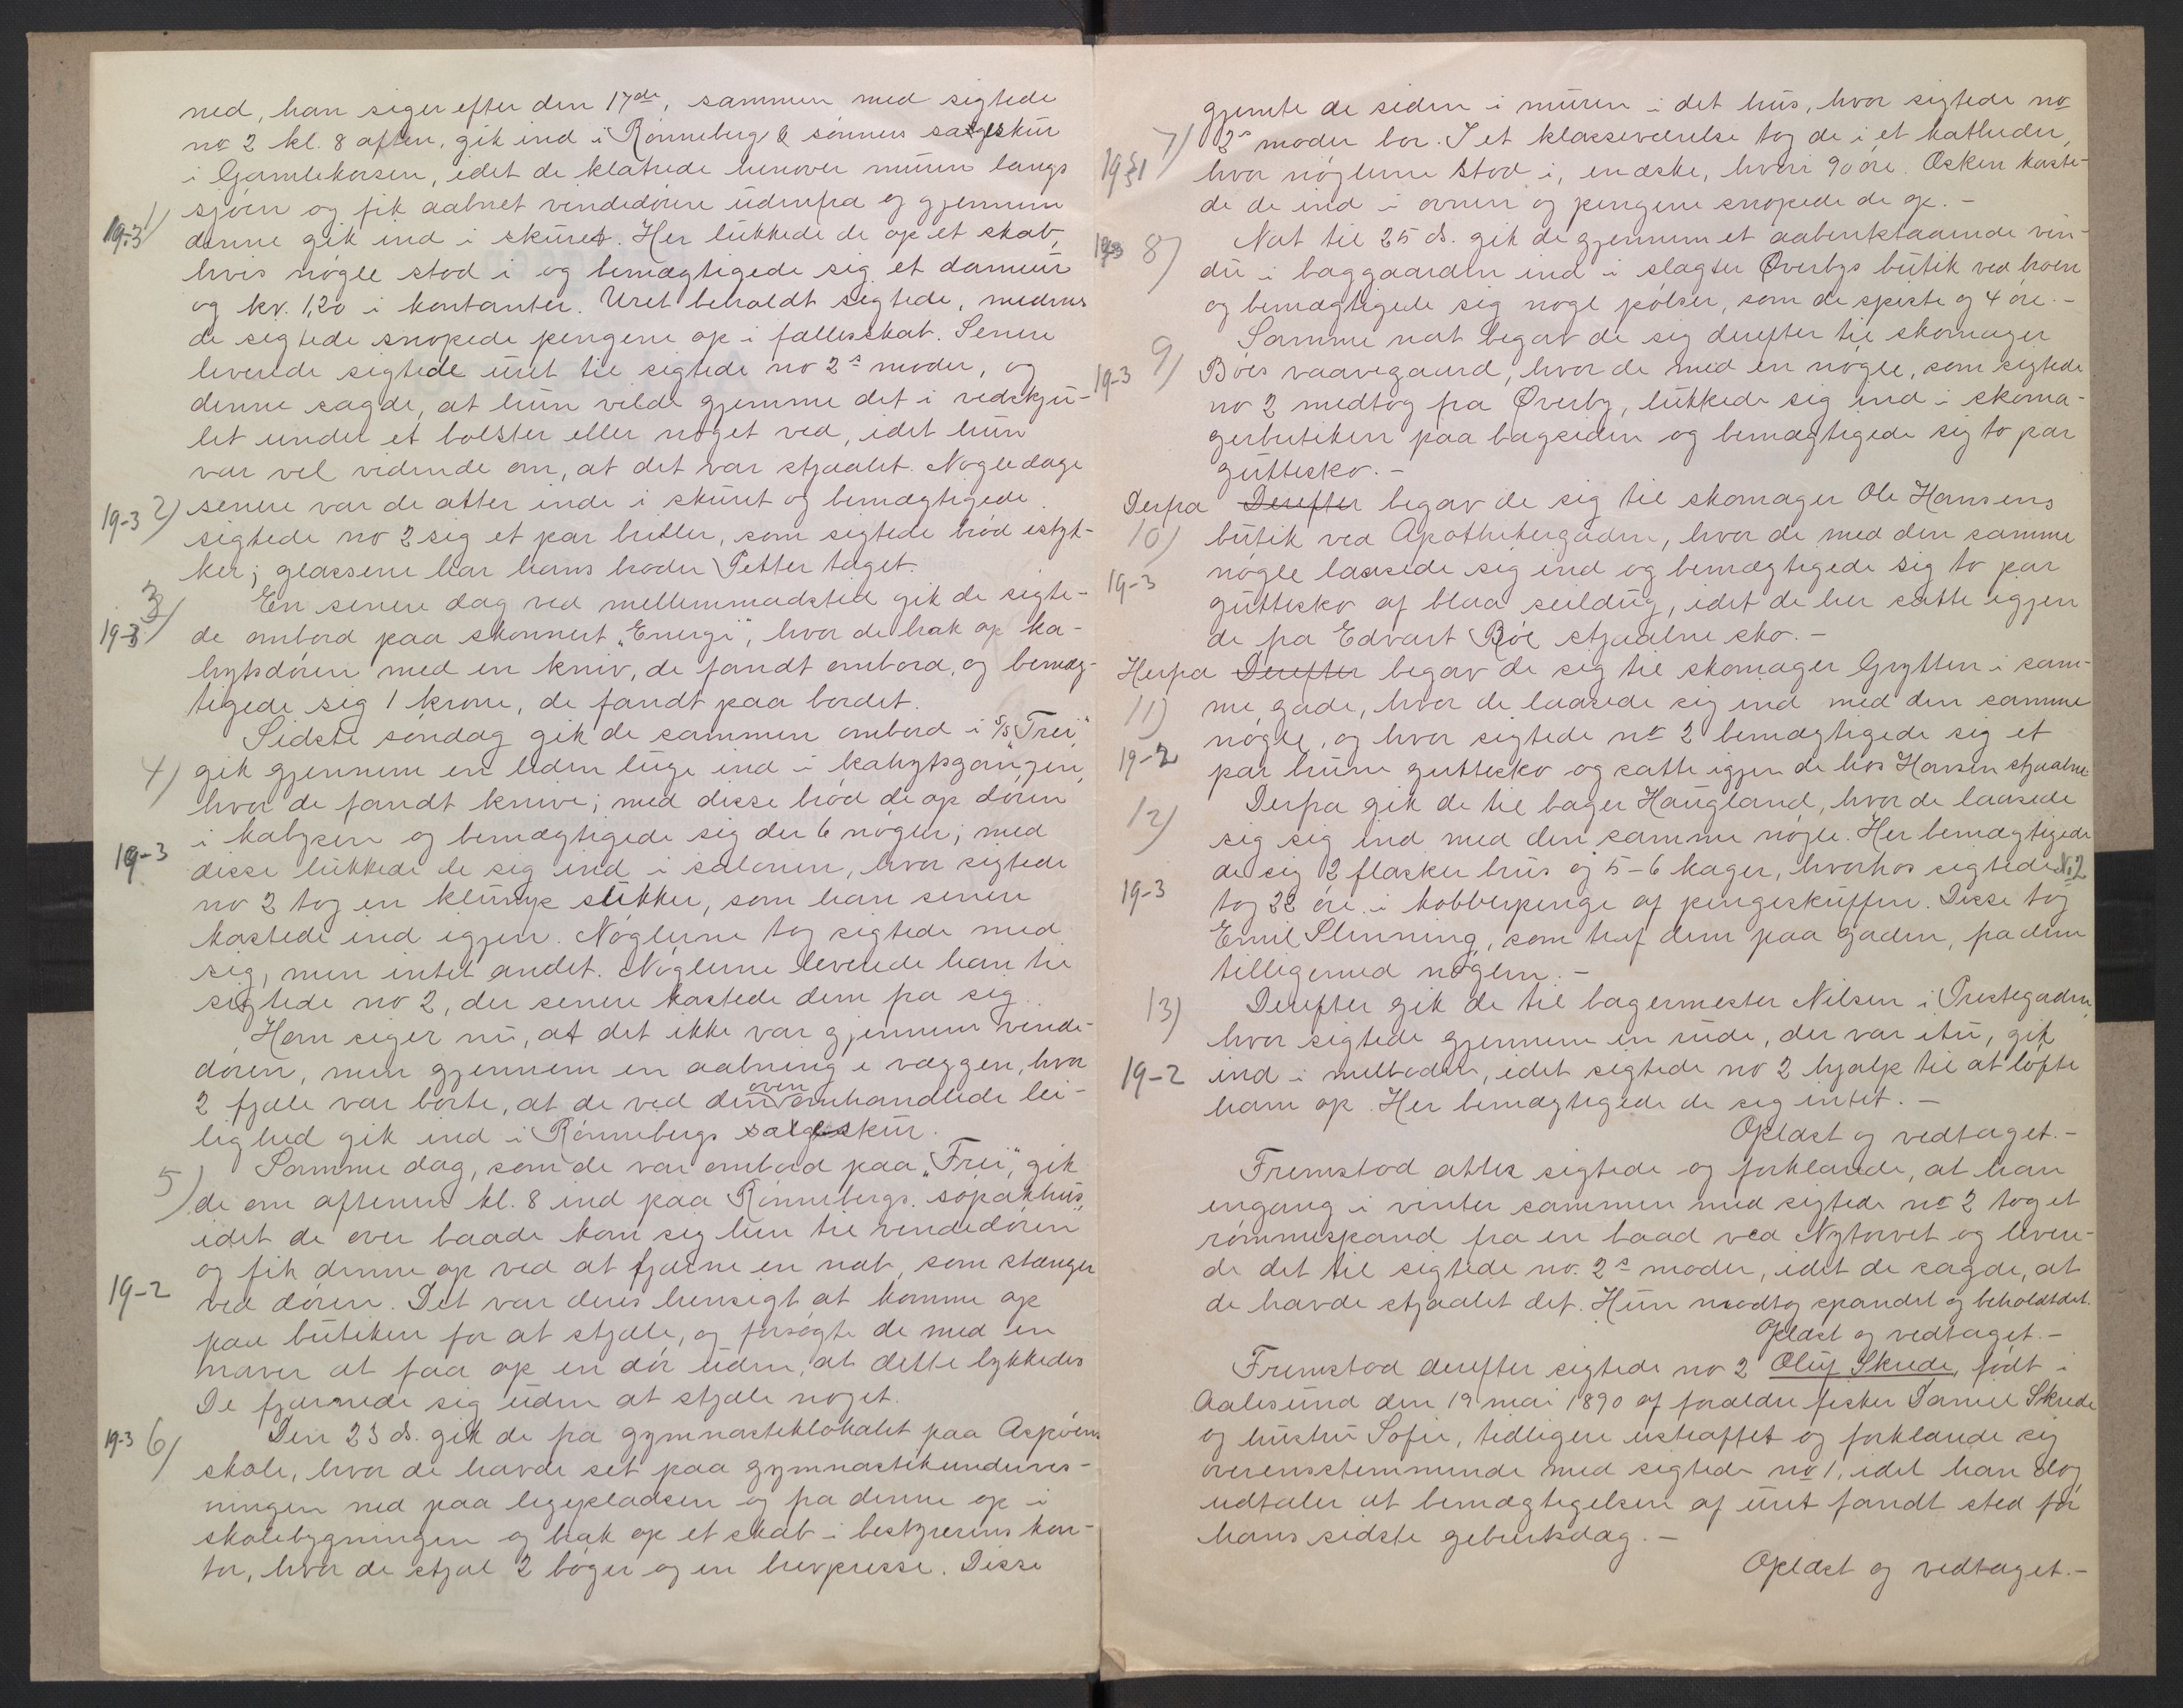 ned, han siger efter den 17de, sammen med sigtede
no 2 kl. 8 aften, gik ind i Rønneberg & sønners salgsskur
i Gamlekorsen, idet de klatrede henover muren langs
sjøen og fik aabnet vindedøren udenfra og gjennem
19-3 1) denne gik ind i skuret. Her lukkede de op et skab,
hvis nøgle stod i og bemægtigede sig et dameur
og kr. 1,20 i kontanter. Uret beholdt sigtede, medens
de sigtede snopede pengene op i fællesskab. Senere
leverede sigtede uret til sigtede no 2s moder, og
denne sagde, at hun vilde gjemme det i vedskju-
let under et bolster eller noget ved, idet hun
var vel vidende om, at det var stjaalet. Nogle dage
19-3 2) senere var de atter inde i skuret og bemægtigede
sigtede no 2 sig et par briller, som sigtede brød istyk-
ker; glassene har hans broder Petter taget.
3) En senere dag ved mellemmadstid gik de sigte-
19-3 de ombord paa skonnert "Energi", hvor de brak op ka-
hytsdøren med en kniv, de fandt ombord, og bemæg-
tigede sig 1 krone, de fandt paa bordet.
Sidste søndag gik de sammen ombord i S/S "Frei",
4) gik gjennem en liden luge ind i kahytsgangen,
hvor de fandt knive; med disse brød de op døren
i kabyssen og bemægtigede sig der 6 nøgler; med
19-3 disse lukkede de sig ind i salonen, hvor sigtede
no 2 tog en klump sukker, som han senere
kastede ind igjen. Nøglerne tog sigtede med
sig, men intet andet. Nøglerne leverede han til
sigtede no 2, der senere kastede dem fra sig.
Han siger nu, at det ikke var gjennem vinde-
døren, men gjennem en aabning i væggen, hvor
2 fjæle var borte, at de ved den ovenomhandlede lei-
lighed gik ind i Rønnebergs salgsskur.
5) Samme dag, som de var ombord paa "Frei", gik
de om aftenen kl. 8 ind paa Rønnebergs søpakhus,
idet de over baade kom sig hen til vindedøren
og fik denne op ved at fjærne en nab, som stænger
19-2 ved døren. Det var deres hensigt at komme op
paa butiken for at stjæle, og forsøgte de med en
naver at faa op en dør uden, at dette lykkedes
De fjærnede sig uden at stjæle noget.
19-3 6) Den 23 ds. gik de fra gymnastiklokalet paa Aspøens
skole, hvor de havde set paa gymnastikundervis-
ningen ned paa legepladsen og fra denne op i
skolebygningen og brak op et skab i bestyrerens kon-
tor, hvor de stjal 2 bøger og en brevpresse. Disse
gjemte de siden i muren i det hus, hvor sigtede no
7) 2s moder bor. I et klasseværelse tog de i et katheder,
hvor nøglerne stod i, en æske, hvori 90 øre. Æsken kaste-
de de ind i ovnen og pengene snopede de op.-
8) Nat til 25 ds. gik de gjennem et aabentstaaende vin-
du i baggaarden ind i slagter Øverbys butik ved broen
og bemægtigede sig nogle pølser, som de spiste og 4 øre.-
9) Samme nat begav de sig derefter til skomager
19-3 Bøes vaavegaard, hvor de med en nøgle, som sigtede
no 2 medtog fra Øverby, lukkede sig ind i skoma-
gerbutiken paa bagsiden og bemægtigede sig to par
guttesko.-
Derfra Derefter begav de sig til skomager Ole Hansens
10) butik ved Apothekergaden, hvor de med den samme
19-3 nøgle laasede sig ind og bemægtigede sig to par
guttesko af blaa seildug, idet de her satte igjen
de fra Edvart Bøe stjaalne sko.-
Herfra Derefter begav de sig til skomager Grytten i sam-
11) me gade, hvor de laasede sig ind med den samme
nøgle, og hvor sigtede no 2 bemægtigede sig et
19-2 par brune guttesko og satte igjen de hos Hansen stjaalne
12) Derfra gik de til bager Haugland, hvor de laasede
sig sig ind med den samme nøgle. Her bemægtigede
de sig 2 flasker brus og 5-6 kager, hvorhos sigtede N. 2
19-3 tog 22 øre i kobberpenge af pengeskuffen. Disse tog
Emil Slinning, som traf dem paa gaden, fra dem
tilligemed nøglen.-
13) Derefter gik de til bagermester Nilsen i Prestegaden,
hvor sigtede gjennem en rude, der var itu, gik
19-2 ind i melboden, idet sigtede no 2 hjalp til at løfte
ham op. Her bemægtigede de sig intet.-
Oplæst og vedtaget.-
Fremstod atter sigtede og forklarede, at han
engang i vinter sammen med sigtede no 2 tog et
rømmespand fra en baad ved Nytorvet og levere-
de det til sigtede no. 2s moder, idet de sagde, at
de havde stjaalet det. Hun modtog spandet og beholdt det.
Oplæst og vedtaget.-
Fremstod derefter sigtede no 2 Oluf Skrede, født i
Aalesund den 19 mai 1890 af forældre fisker Daniel Skrede
og hustru Sofie, tidligere ustraffet og forklarede sig
overensstemmende med sigtede no 1, idet han dog
udtaler at bemægtigelsen af uret fandt sted før
hans sidste geburtsdag.-
Oplæst og vedtaget.-